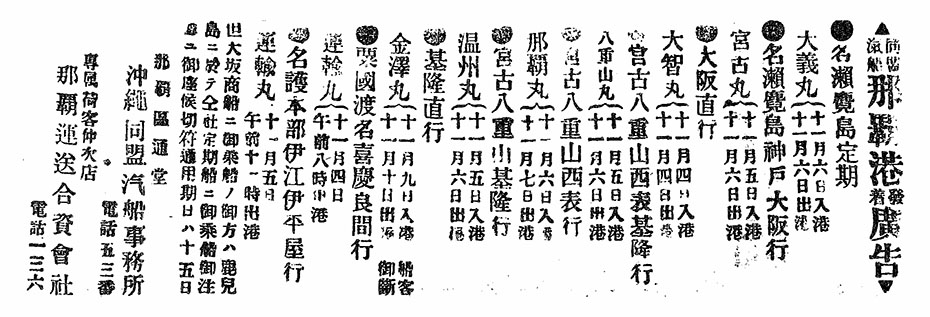 ▲同盟汽船那覇港發着廣告▼
●名瀨鹿島定期
大義丸 十一月六日入港 十一月六日出港
●名瀨鹿島神戸大阪行
宮古丸 十一月五日入港 十一月六日出港
●大阪直行
大智丸 十一月四日入港 十一月四日出港
●宮古八重山西表基隆行
八重山丸 十一月六日入港 十一月 日出港
●宮古八重山西表行
那覇丸 十一月六日入港 十一月七日出港
●宮古八重山基隆行
温州丸 十一月五日入港 十一月六日出港
●基隆直行
金澤丸 十一月九日入港 十一月十日出港 船客御斷
●粟國渡名喜慶良間行
運輸丸 十一月四日 午前八時出港
●名護本部伊江伊平屋行
運輸丸 十一月五日 午前十一時出港
但大坂商船ニ御乘船ノ御方ハ鹿兒
島ニ於テ仝社定期船ニ御乘船御注
意ニ御座候切符通用期日ハ十五日
那覇區通堂
沖繩同盟汽船事務所
電話五三番
專屬荷客仲次店
那覇運送合資會社
電話一三六